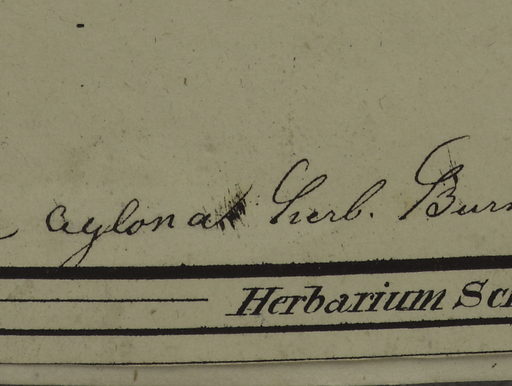 aylona Herb. Burm
Herbarium Sch